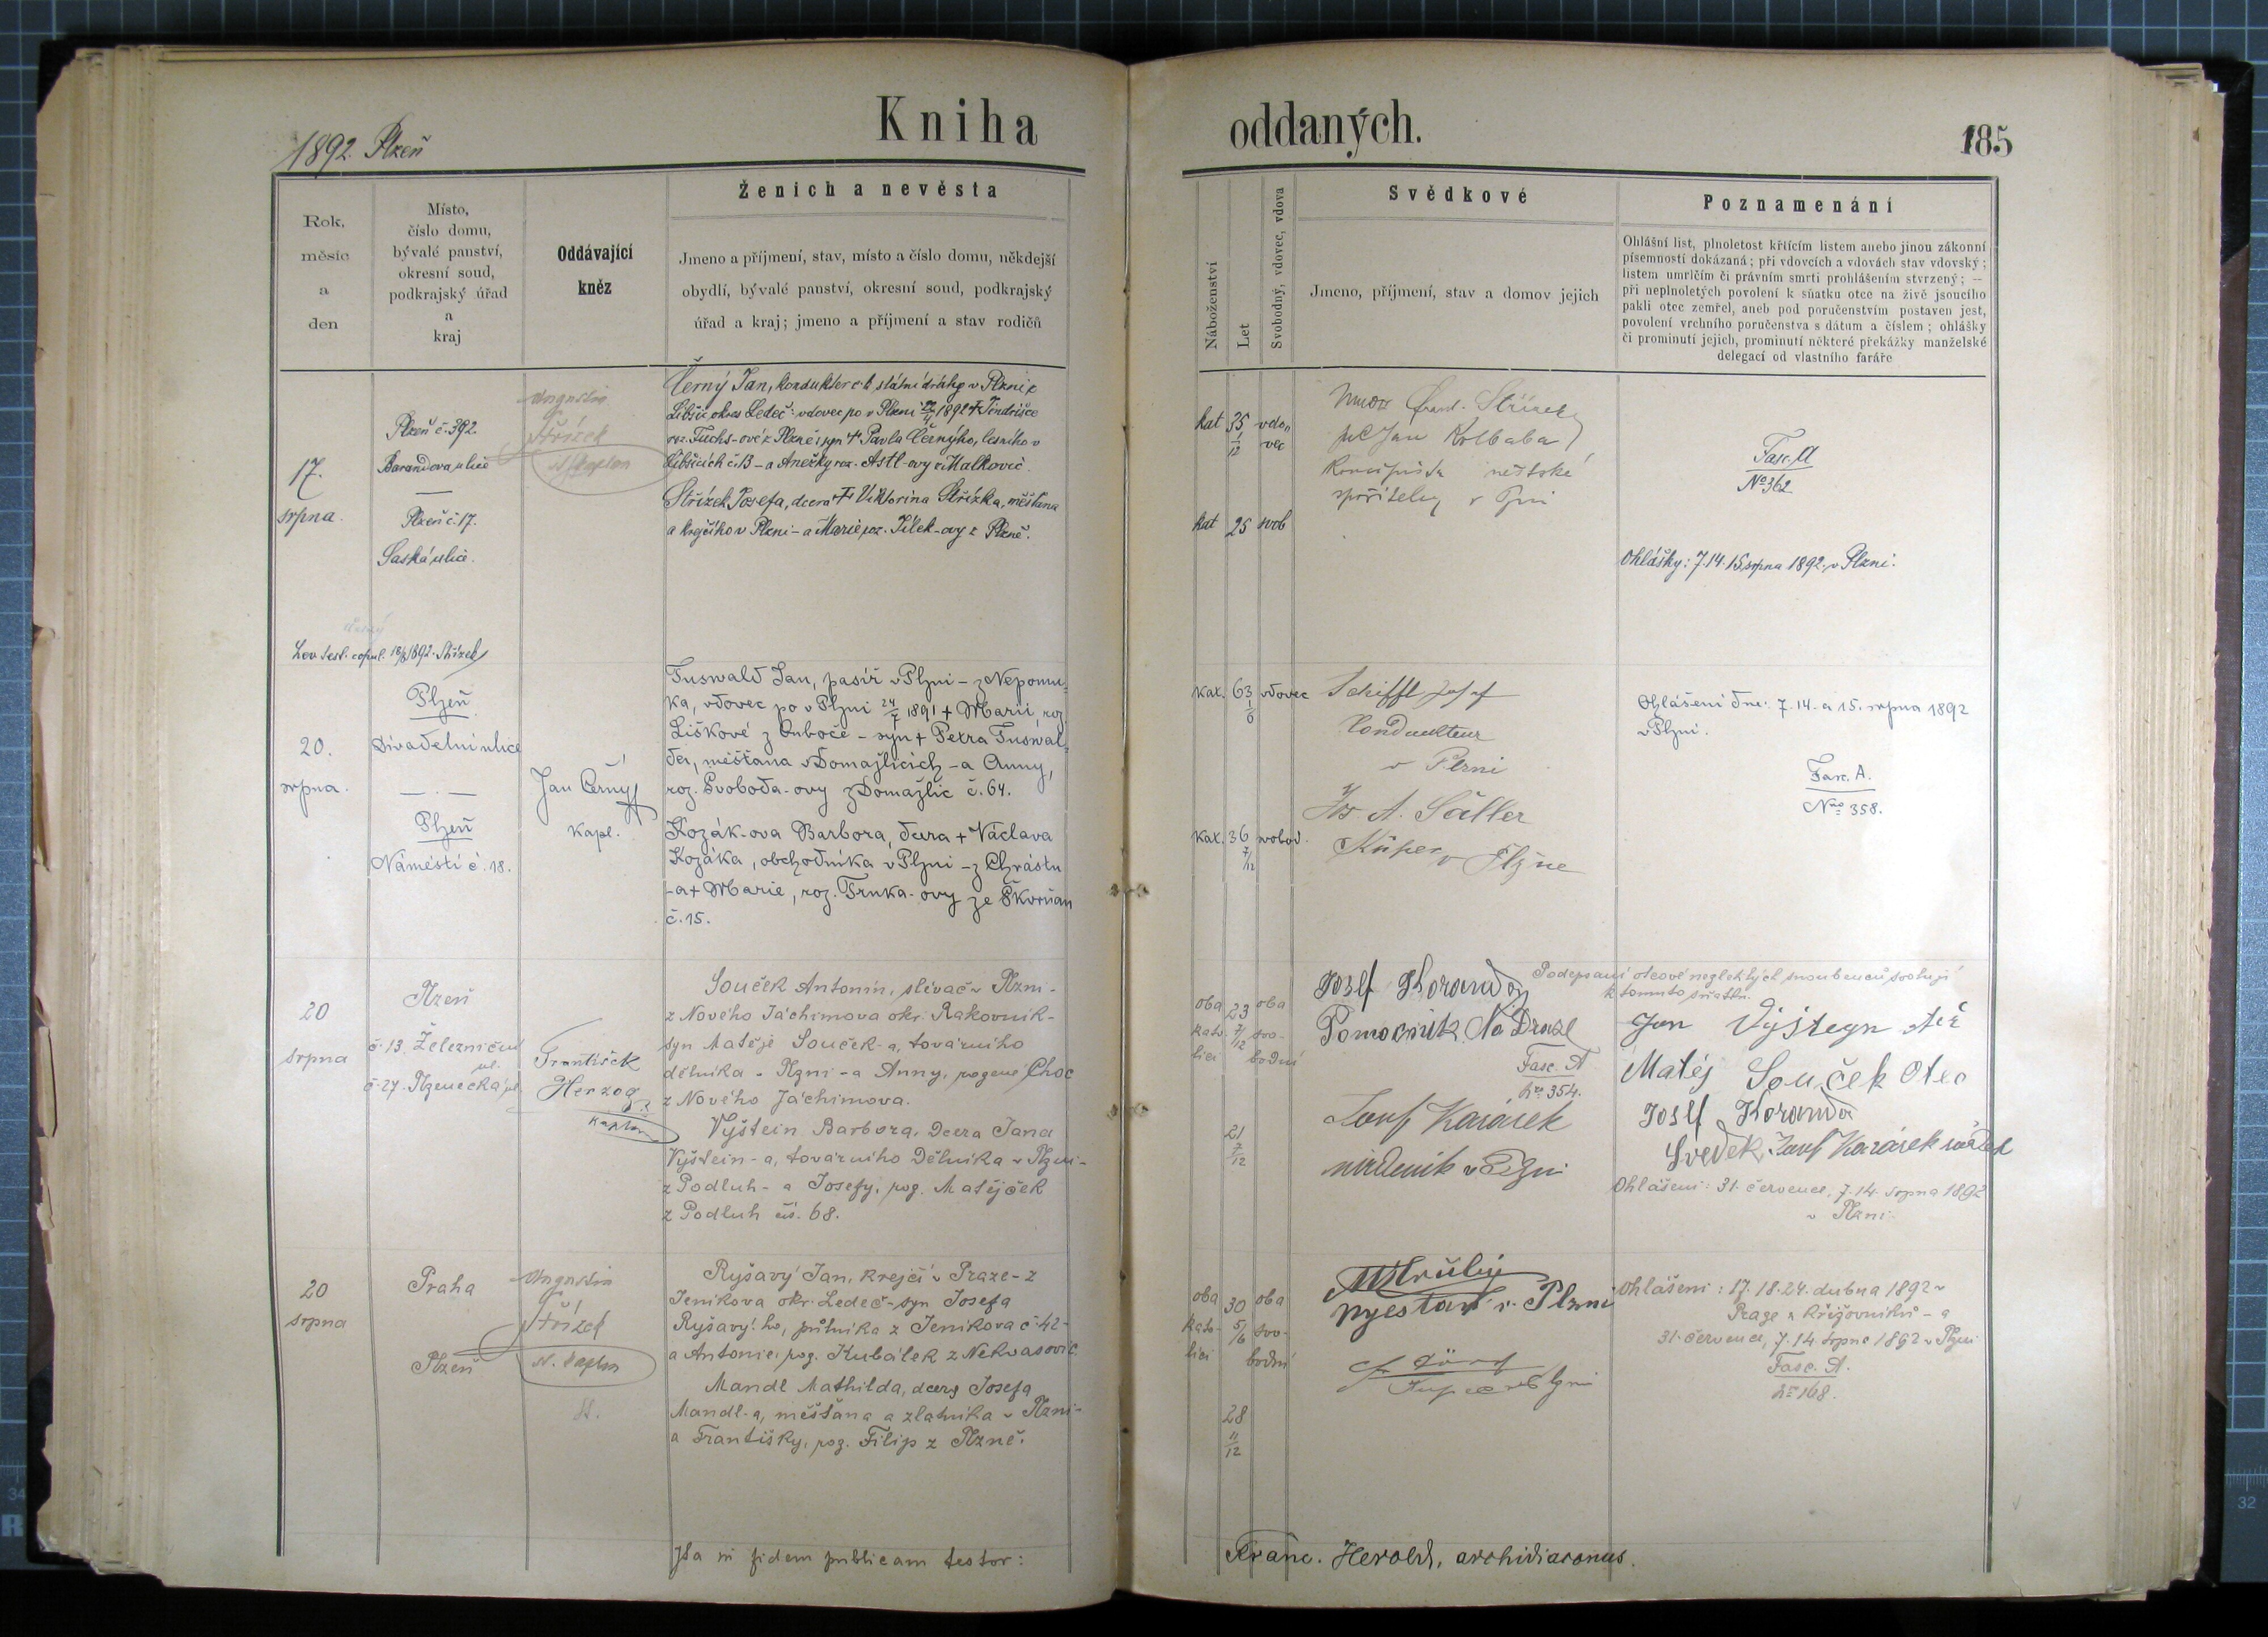 Kniha
oddaných.
1892. Plzeň
185
Rok,
měsíc
a
den
Místo,
číslo domu,
bývalé panství,
okresní soud,
podkrajský úřad
a
kraj
Oddávající
kněz
Ženich a nevěsta
Jmeno a příjmení, stav, místo a číslo domu, někdejší
obydlí, bývalé panství, okresní soud, podkrajský
úřad a kraj; jmeno a příjmení a stav rodičů
Náboženství
Let
Svobodný, vdovec, vdova
Svědkové
Jmeno, příjmení, stav a domov jejich
Poznamenání
Ohlášní list, plnoletost křticím listem anebo jinou zákonní
písemností dokázaná; při vdovcích a vdovách stav vdovský;
listem umrlčím či právním smrti prohlášením stvrzený; —
při neplnoletých povolení k sňatku otce na živě jsoucího
pakli otec zemřel, aneb pod poručenstvím postaven jest,
povolení vrchního poručenstva s dátum a číslem; ohlášky
či prominutí jejich, prominutí některé překážky manželské
delegací od vlastního faráře
17.
srpna.
Plzeň č. 392.
Barandova ulice
—
Plzeň č. 17.
Saská ulice.
Augustin
Střízek
Černý Jan, konduktér c. k. státní dráhy v Plzni z
Libšic okres Ledeč: vdovec po v Plzni 1892 † Jindřišce
roz. Fuchs-ové z Plzně; syn † Pavla Černýho, lesního v
Libšicích č. 13 – a Anežky roz. Astl-ovy z Malkovic.
Střízek Josefa, dcera † Viktorina Střízka, měšťana
a krejčího v Plzni – a Marie roz. Jílek-ovy z Plzně.
kat 35 1/12 vdovec
kat 25 svob
Frant. Střízek
Jan Kolbaba
spořitelny v Plzni
Fasc. A
No 362
Ohlášky: 7. 14. 15. srpna 1892. v Plzni.
test. copul. 18/8 1892. Střízek
20.
srpna.
Plzeň
Divadelní ulice
— . —
Plzeň
Náměstí č. 18.
Jan Černý
kapl.
Tuswald Jan, pasíř v Plzni – z Nepomu-
ka, vdovec po v Plzni 24/7 1891 + Marii, roz.
Liškové z – syn + Petra Tuswal-
da, měšťana v Domažlicích – a Anny,
roz. Svoboda-ovy z Domažlic č. 64.
Kozák-ova Barbora, dcera + Václava
Kozáka, obchodníka v Plzni – z Chrástu
– a + Marie, roz. Trnka-ovy ze Skvrňan
č. 15.
kat. 63 1/6 vdovec
kat. 36 7/12 svobod.
Schiffl Josef
Conducteur
v Plzni
A. Sattler
v Plzne
Ohlášeni dne: 7. 14. a 15. srpna 1892
v Plzni.
Fasc. A.
Nro 358.
20
srpna
Plzeň
č. 13. Železniční
ul.
č. 27. Plzenecká ul.
František
Herzog
kaplan
Souček Antonín, slévač v Plzni –
z Nového Jáchimova okr. Rakovník –
syn Matěje Souček-a, továrního
dělníka v Plzni – a Anny, rozené Choc
z Nového Jáchimova.
Vyštein Barbora, dcera Jana
Vyštein-a, továrního dělníka v Plzni –
z Podluh – a Josefy, roz. Matějček
z Podluh čís. 68.
oba
kato-
líci
23
7/12
oba
svo-
bodní
21
7/12
Josef Koranda
Pomocník Na Draze
Fasc. A
Nro 354.
Josef Karásek
v Plzni
Podepsaní otcové nezletilých snoubenců svolují
k tomuto sňatku.
Jan Vyjštegn
Matěj Souček Otec
Josef Koranda
Svědek, Josef Karásek svědek
Ohlášeni: 31. července, 7. 14. srpna 1892
v Plzni.
20
srpna
Praha
Plzeň
Augustin
Střízek
kaplan
Ryšavý Jan, krejčí v Praze – z
Jeníkova okr. Ledeč – syn Josefa
Ryšavý-ho, půlníka z Jeníkova č. 42 –
a Antonie, roz. Kubálek z Nekvasovic.
Mandl Mathilda, dcera Josefa
Mandl-a, měšťana a zlatníka v Plzni –
a Františky, roz. Filip z Plzně.
oba
kato-
líci
30
5/6
oba
svo-
bodní
28
11/12
v Plzni
Ohlášeni: 17. 18. 24. dubna 1892 v
Praze u Křižovníků – a
31. července, 7. 14. srpna 1892 v Plzni
Fasc. A.
Nro 168.
Ita in fidem publicam testor:
Franc. Herold, archidiaconus.